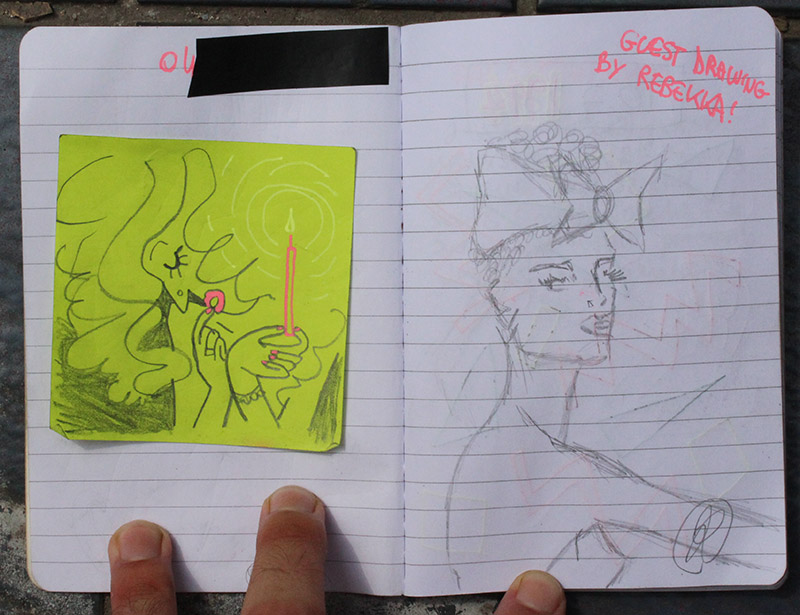 OU
GUEST DRAWING
BY REBEKKA!